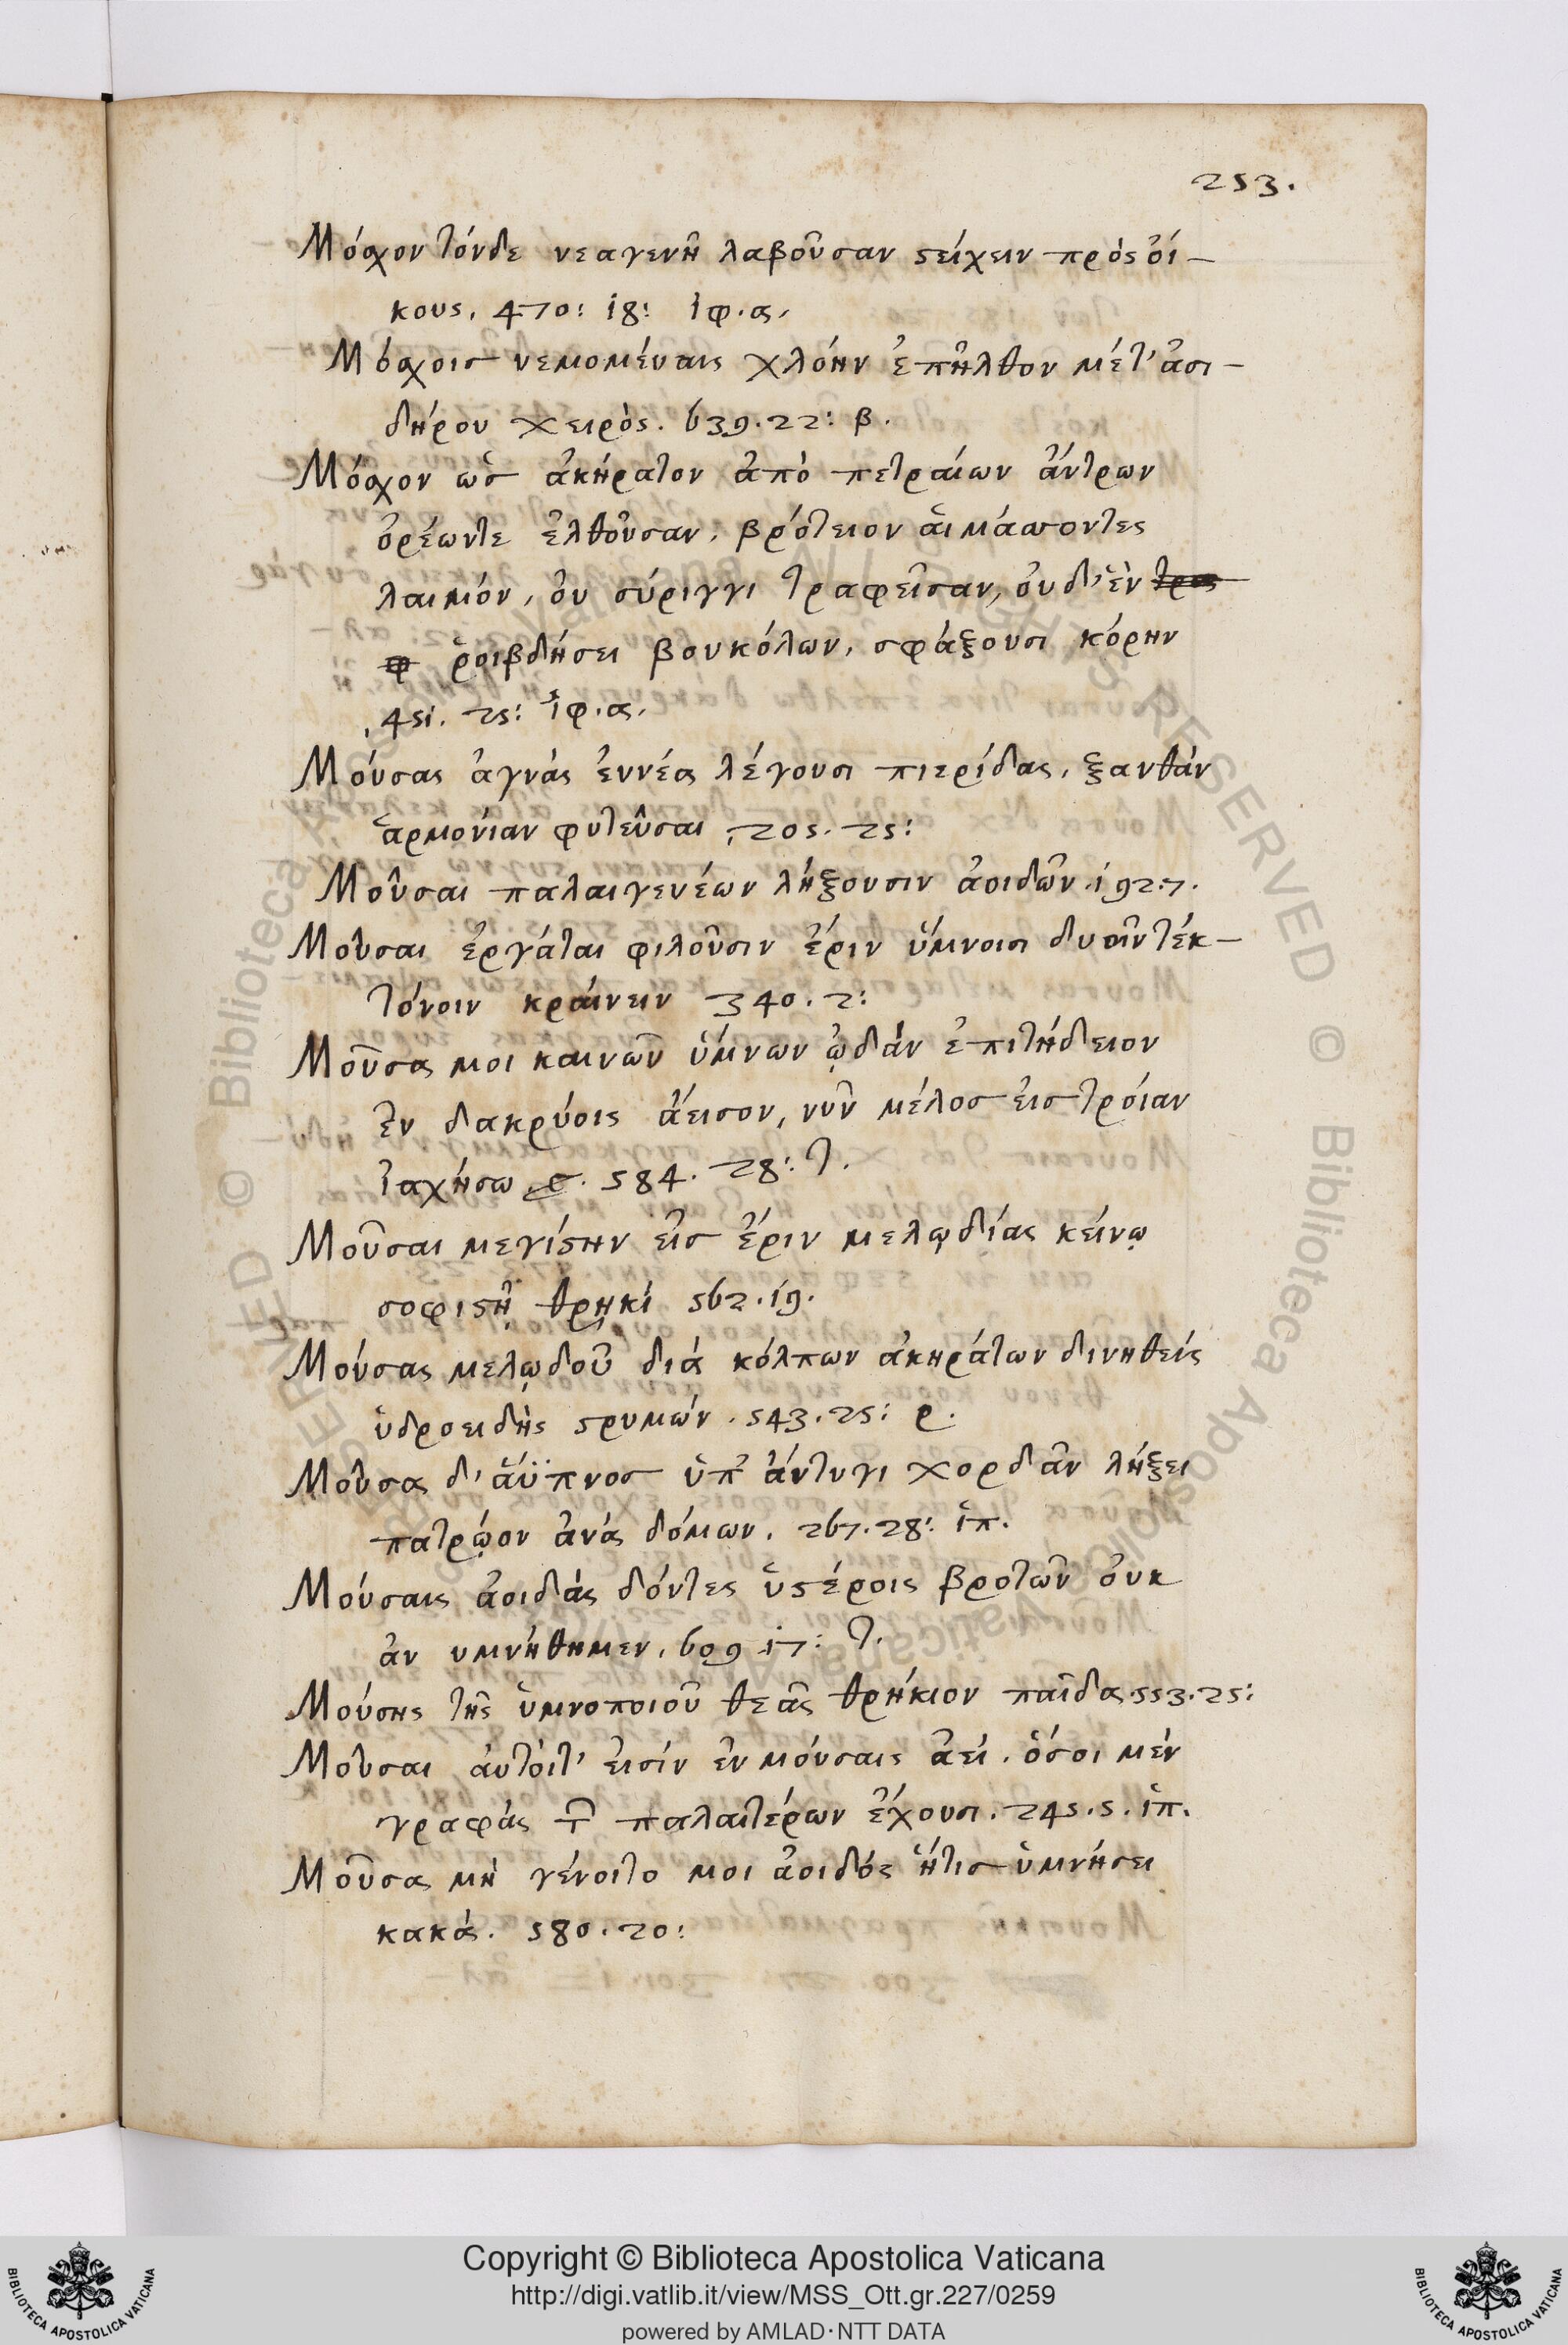 253.
Μόσχον τόνδε νεαγενῆ λαβοῦσαν στείχειν πρὸς οἴ-
κους, 470: 18: ἰφ. α.
Μόσχοις νεμομέναις χλόην ἐπῆλθον μέτ' ἀσι-
δήρου χειρὸς. 639. 22: β.
Μόσχον ὡς ἀκήρατον ἀπὸ πετραίων ἄντρων
ὀρέωντε ἐλθοῦσαν, βρότειον αἱμάσσοντες
λαιμόν, οὐ σύριγγι τραφεῖσαν, οὐδ' ἐν
ῥοιβδήσει βουκόλων, σφάξουσι κόρην
451. 25: ἰφ. α.
Μούσας ἁγνάς ἐννέα λέγουσι πιερίδας, ξανθάν
ἁρμονίαν φυτεῦσαι, 205. 25:
Μοῦσαι παλαιγενέων λήξουσιν ἀοιδῶν. 192. 7.
Μοῦσαι ἐργάται φιλοῦσιν ἔριν ὕμνοισι δυοῖν τέκ-
τόνοιν κραίνειν 340. 2:
Μοῦσα μοι καινῶν ὕμνων ᾠδάν ἐπιτήδειον
ἐν δακρύοις ἄεισον, νῦν μέλος εἰς τρόιαν
ἰαχήσω. 584. 28: τ.
Μοῦσαι μεγίστην εἰς ἔριν μελῳδίας κείνῳ
σοφιστῇ θρῃκί 562. 19.
Μούσας μελῳδοῦ διά κόλπων ἀκηράτων δινηθείς
ὑδροειδὴς στρυμών. 543. 25: ρ.
Μοῦσα δ' ἄϋπνος ὑπ' ἄντυγι χορδᾶν λήξει
πατρῷον ἀνά δόμων. 267. 28: ἱπ.
Μούσαις ἀοιδάς δόντες ὑστέροις βροτῶν οὐκ
ἀν υμνήθημεν, 609 17: τ.
Μούσης τῆς ὑμνοποιοῦ θεᾶς θρήκιον παῖδα 553. 25:
Μοῦσαι ἀυτόιτ' εἰσίν ἐν μούσαις ἀεί. ὅσοι μέν
γραφάς τῶν παλαιτέρων ἔχουσι. 245. 5. ἱπ.
Μοῦσα μὴ γένοιτο μοι ἀοιδός ἥτις ὑμνήσει
κακά. 580. 20:
Copyright © Biblioteca Apostolica Vaticana
http://digi.vatlib.it/view/MSS_Ott.gr.227/0259
powered by AMLAD·NTT DATA